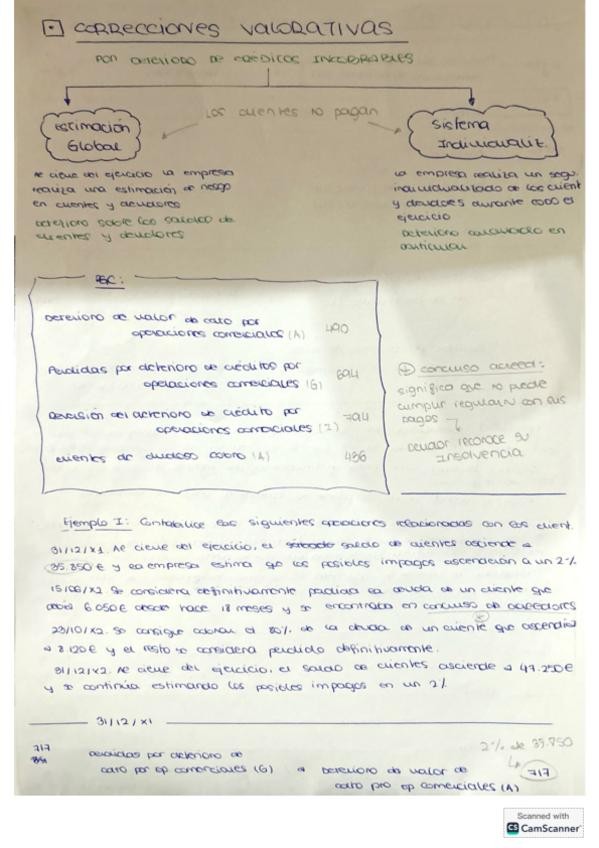 CORRECCIONES VALORATIVAS
POR DETERIORO DE CRÉDITOS INCOBRABLES
LOS clientes no pagan
Estimación
Global
Sistema
Individualit.
Al cierre del ejercicio la empresa
realiza una estimación de riesgo
en clientes y deudores
deterioro sobre los saldos de
clientes y deudores
La empresa realiza un segu.
individualizado de los client
y deudores durante todo el
ejercicio
Deterioro analizado en
particular
PGC:
Deterioro de valor de cdto por
operaciones comerciales (A) 490
Pérdidas por deterioro de créditos por
operaciones comerciales (G) 694
Reversión del deterioro de crédito por
operaciones comerciales (I) 794
clientes de dudoso cobro (A) 436
concurso acreed:
significa que no puede
cumplir regularm con sus
pagos
deudor reconoce su
insolvencia
Ejemplo I: Contabilice las siguientes operaciones relacionadas con los client.
31/12/X1. Al cierre del ejercicio, el saldo de clientes asciende a
35.850 € y la empresa estima que los posibles impagos ascenderán a un 2%
15/06/X2. Se considera definitivamente perdida la deuda de un cliente que
debía 6.050€ desde hace 18 meses y se encontraba en concurso de acreedores
23/10/X2. Se consigue cobrar el 80% de la deuda de un cliente que ascendía
a 8.120€ y el resto se considera perdido definitivamente.
31/12/X2. Al cierre del ejercicio, el saldo de clientes asciende a 47.250€
y se continúa estimando los posibles impagos en un 2%
31/12/X1
2% de 35.850
717 Pérdidas por deterioro de
cdto por op comerciales (G) a Deterioro de valor de 717
cdto pro op comerciales (A)
Scanned with
CS CamScanner